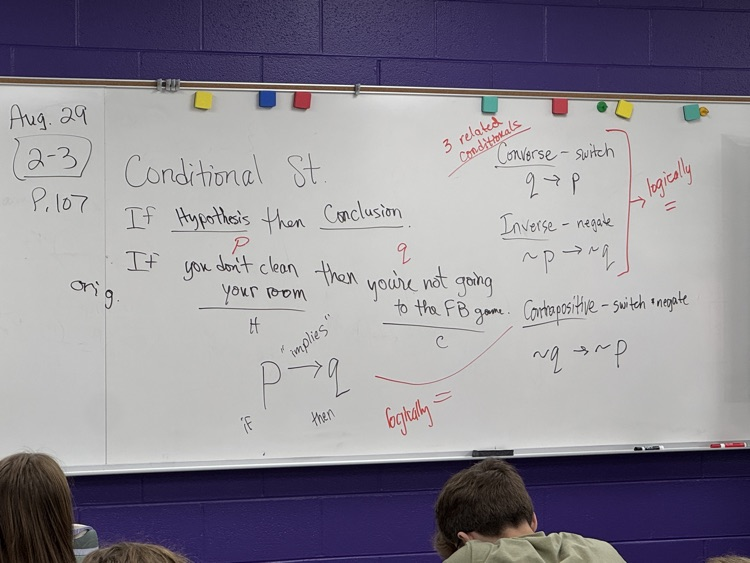 Aug. 29
2-3
P. 107
Conditional St.
If Hypothesis then Conclusion.
p q
orig.
If you don't clean your room then you're not going to the FB game.
H C
"implies"
p → q
if then
logically =
3 related conditionals
Converse - switch
q → p
Inverse - negate
~p → ~q
→ logically =
Contrapositive - switch + negate
~q → ~p